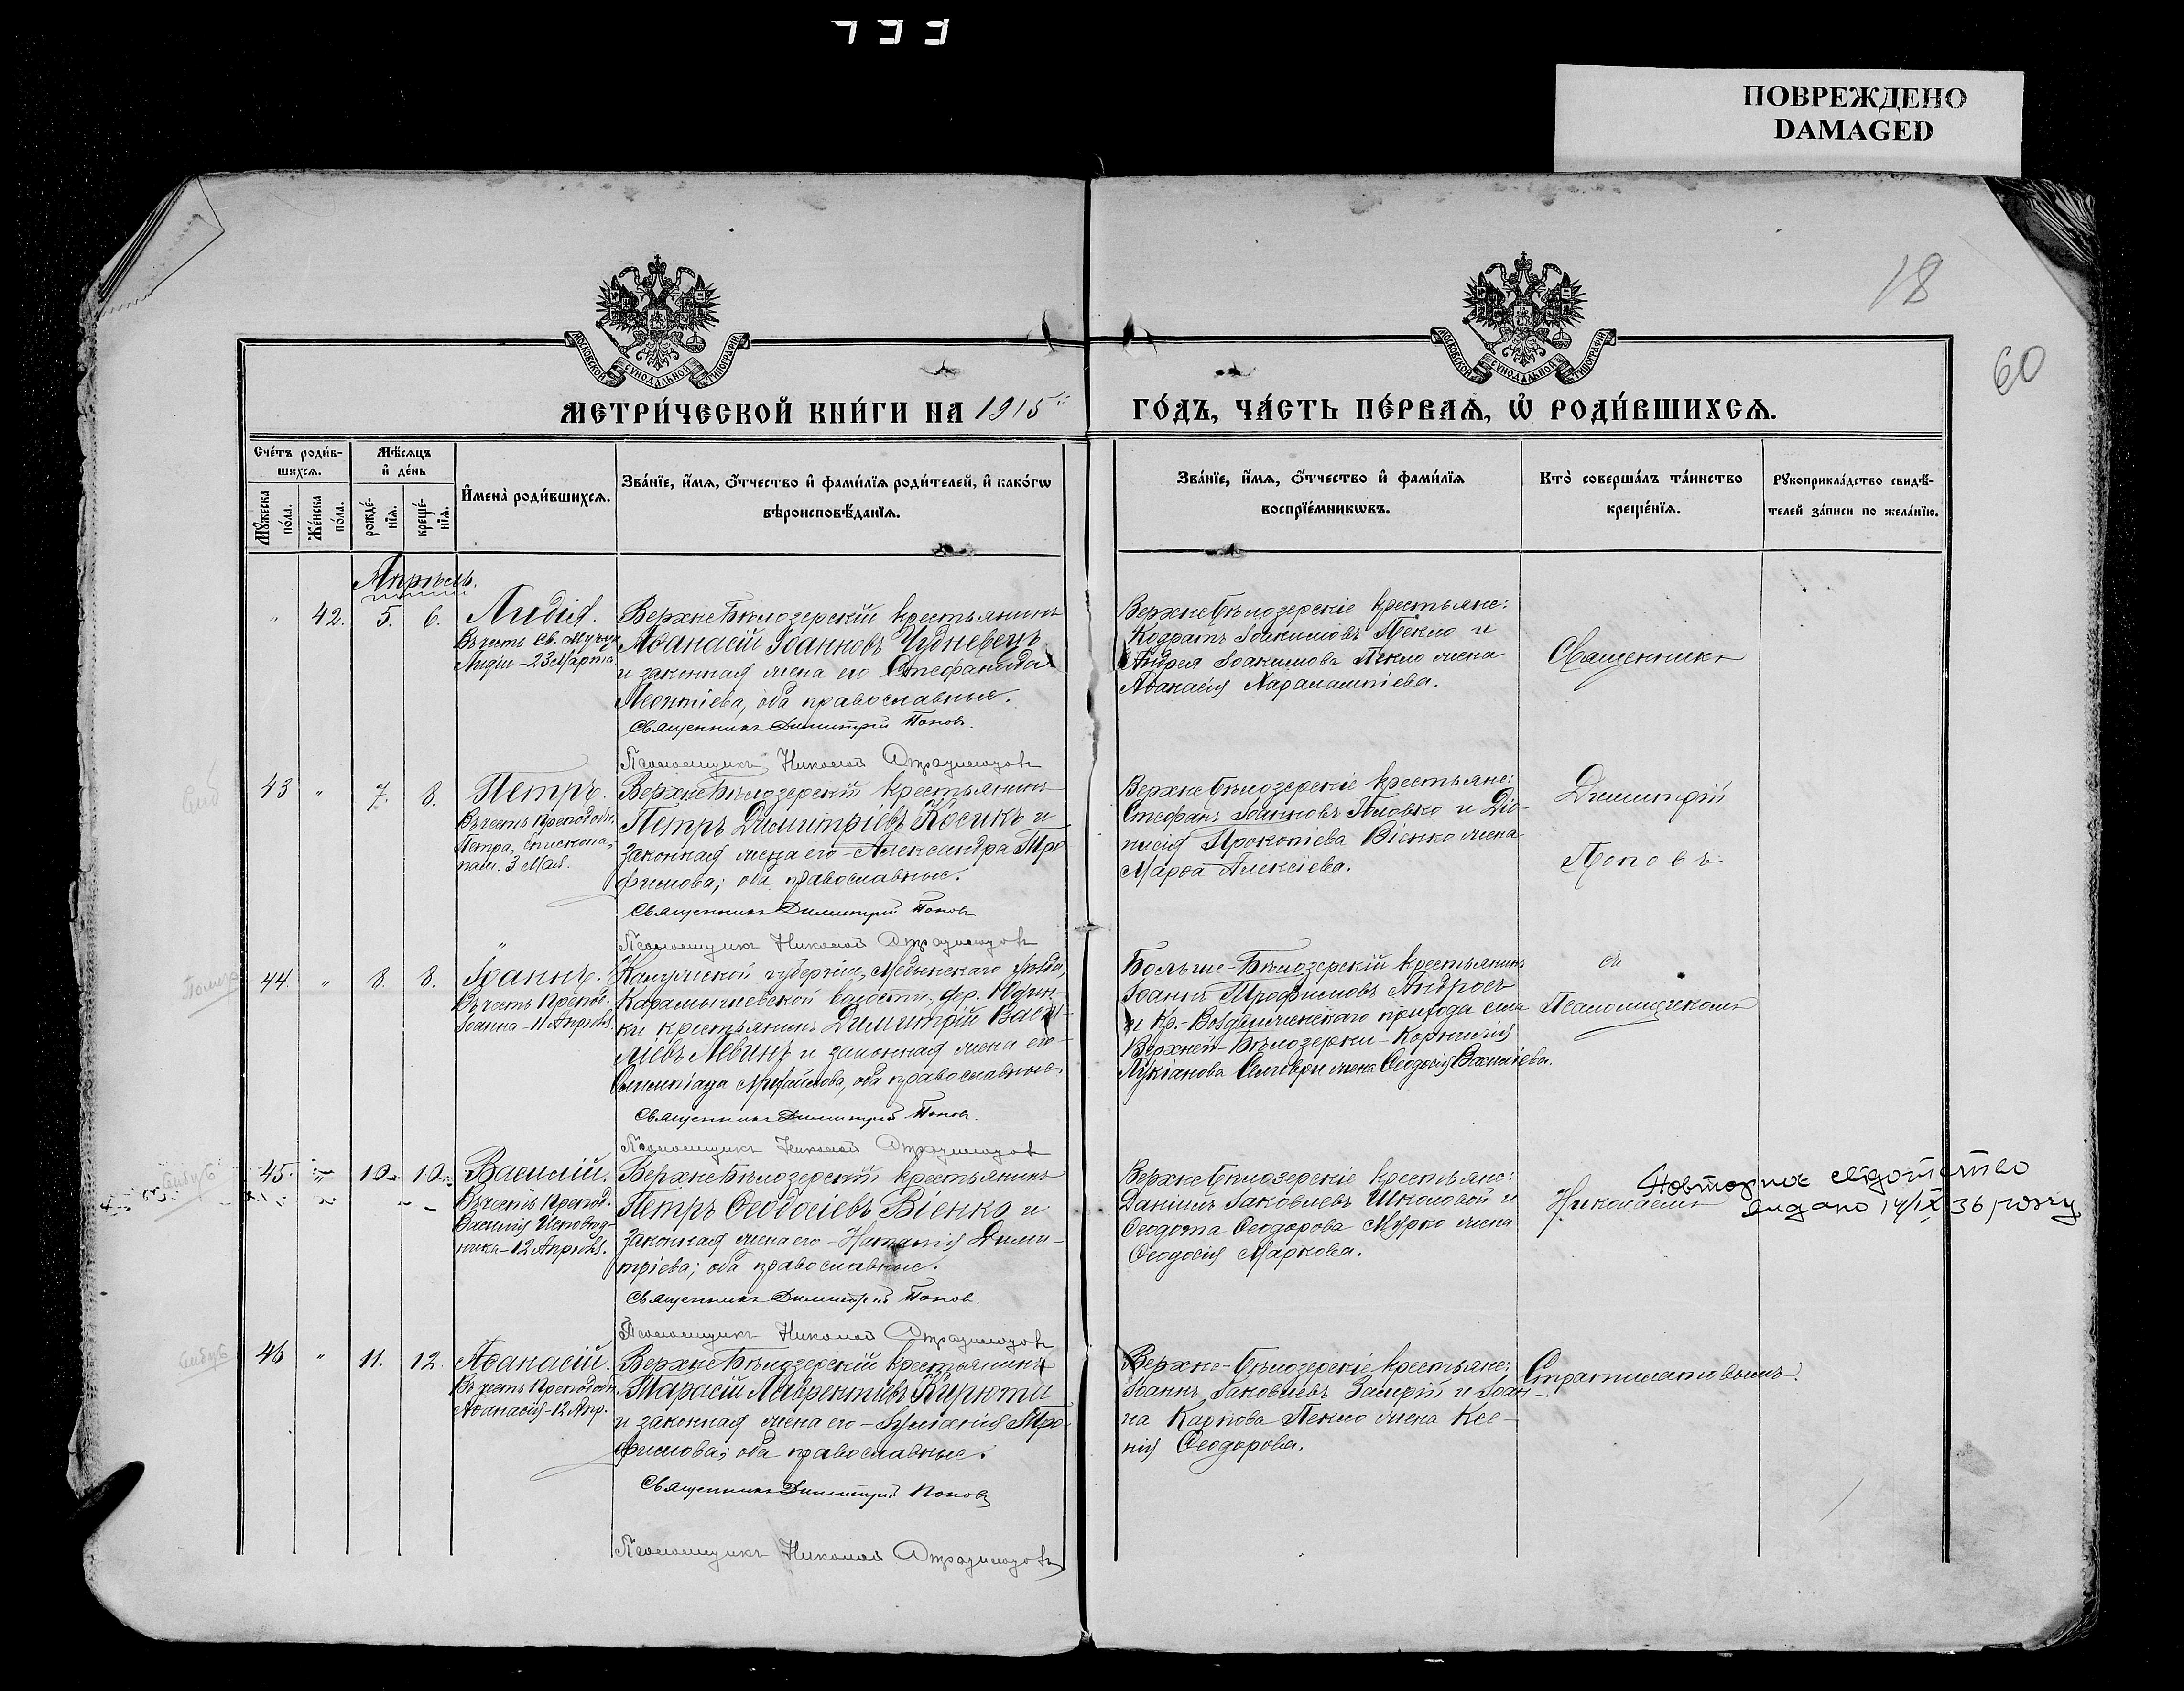 733
ПОВРЕЖДЕНО
DAMAGED
18
60
МОСКОВСКОЙ СѴНОДАЛЬНОЙ ТИПОГРАФІИ
МОСКОВСКОЙ СѴНОДАЛЬНОЙ ТИПОГРАФІИ
МЕТРИ́ЧЕСКОЙ КНИ́ГИ НА 1915й
ГО́ДЪ, ЧА́СТЬ ПЕ́РВАѦ, Ѽ РОДИ́ВШИХСѦ.
Сче́тъ роди́в-
шихсѧ.
Мꙋ́жеска по́ла.
Же́нска по́ла.
Мѣ́сѧцъ
и҆ де́нь
рожде́-нїѧ.
креще́-нїѧ.
И҆мена̀ роди́вшихсѧ.
Зва́нїе, и҆́мѧ, ѻ҆́тчество и҆ фами́лїѧ роди́телей, и҆ како́гѡ
вѣроисповѣ́данїѧ.
Зва́нїе, и҆́мѧ, ѻ҆́тчество и҆ фами́лїѧ
воспрїе́мникѡвъ.
Кто̀ соверша́лъ та́инство
креще́нїѧ.
Рꙋкоприкла́дство свидѣ́-
телей за́писи по жела́нїю.
Апрѣль.
" 42. 5. 6. Лидія.
Въ честь Св. Муч-цы
Лидіи - 23 Марта
ВерхнеБѣлозерскій крестьянинъ
Аѳанасій Іоанновъ Чудневецъ
и законная жена его Стефанида
Леонтіева, оба православные.
Священникъ Димитрій Поповъ.
Псаломщикъ Николай Стратилатовъ
ВерхнеБѣлозерскіе крестьяне:
Кодратъ Іоакимовъ Пекло и
Андрея Іоакимова Пекло жена
Аѳанасія Харалампіева.
Священникъ
43 " 7. 8. Петръ.
Въ честь Преподоб.
Петра, епископа,
пам. 3 Мая.
ВерхнеБѣлозерскій крестьянинъ
Петръ Димитріевъ Косикъ и
законная жена его - Александра Тро-
фимова; оба православные.
Священникъ Димитрій Поповъ
Псаломщикъ Николай Стратилатовъ
ВерхнеБѣлозерскіе крестьяне:
Стефанъ Іоанновъ Головко и Діо-
нисія Прокопіева Віенко жена
Марѳа Алексіева.
Димитрій
Поповъ
44. " 8. 8. Іоаннъ.
Въ честь Препод.
Іоанна - 11 Апрѣля.
Калужской губерніи, Медынскаго уѣзда,
Карамышевской волости, дер. Юдин-
ки крестьянинъ Димитрій Васи-
ліевъ Левинъ и законная жена его
Олимпіада Михайлова, оба православные.
Священникъ Димитрій Поповъ.
Псаломщикъ Николай Стратилатовъ
Больше-Бѣлозерскій крестьянинъ
Іоаннъ Трофимовъ Андросъ
и Кр.-Воздвиженскаго прихода села
Верхней-Бѣлозерки - Корнилія
Лукіанова жена Ѳеодосія Василіева.
съ
Псаломщикомъ
45. " 10. 10. Василій.
Въ честь Препод.
Василія Исповѣд-
ника - 12 Апрѣля.
ВерхнеБѣлозерскій крестьянинъ
Петръ Ѳеодосіевъ Віенко и
законная жена его - Наталія Дими-
тріева; оба православные.
Священникъ Димитрій Поповъ.
Псаломщикъ Николай Стратилатовъ
ВерхнеБѣлозерскіе крестьяне:
Даніилъ Іаковлевъ Школовой и
Ѳеодота Ѳеодорова Мурко жена
Ѳеодосія Маркова.
Николаемъ
видано 14/IX 36 року
46 " 11. 12. Аѳанасій.
Въ честь Преподоб.
Аѳанасія - 12 Апр.
ВерхнеБѣлозерскій крестьянинъ
Тарасій Лаврентіевъ Кирюта
и законная жена его - Іуліанія Тро-
фимова; оба православные.
Священникъ Димитрій Поповъ
Псаломщикъ Николай Стратилатовъ
Верхне-Бѣлозерскіе крестьяне:
Іоаннъ Іаковлевъ и Іоан-
на Карпова Пекло жена Ксе-
нія Ѳеодорова.
Стратилатовымъ.